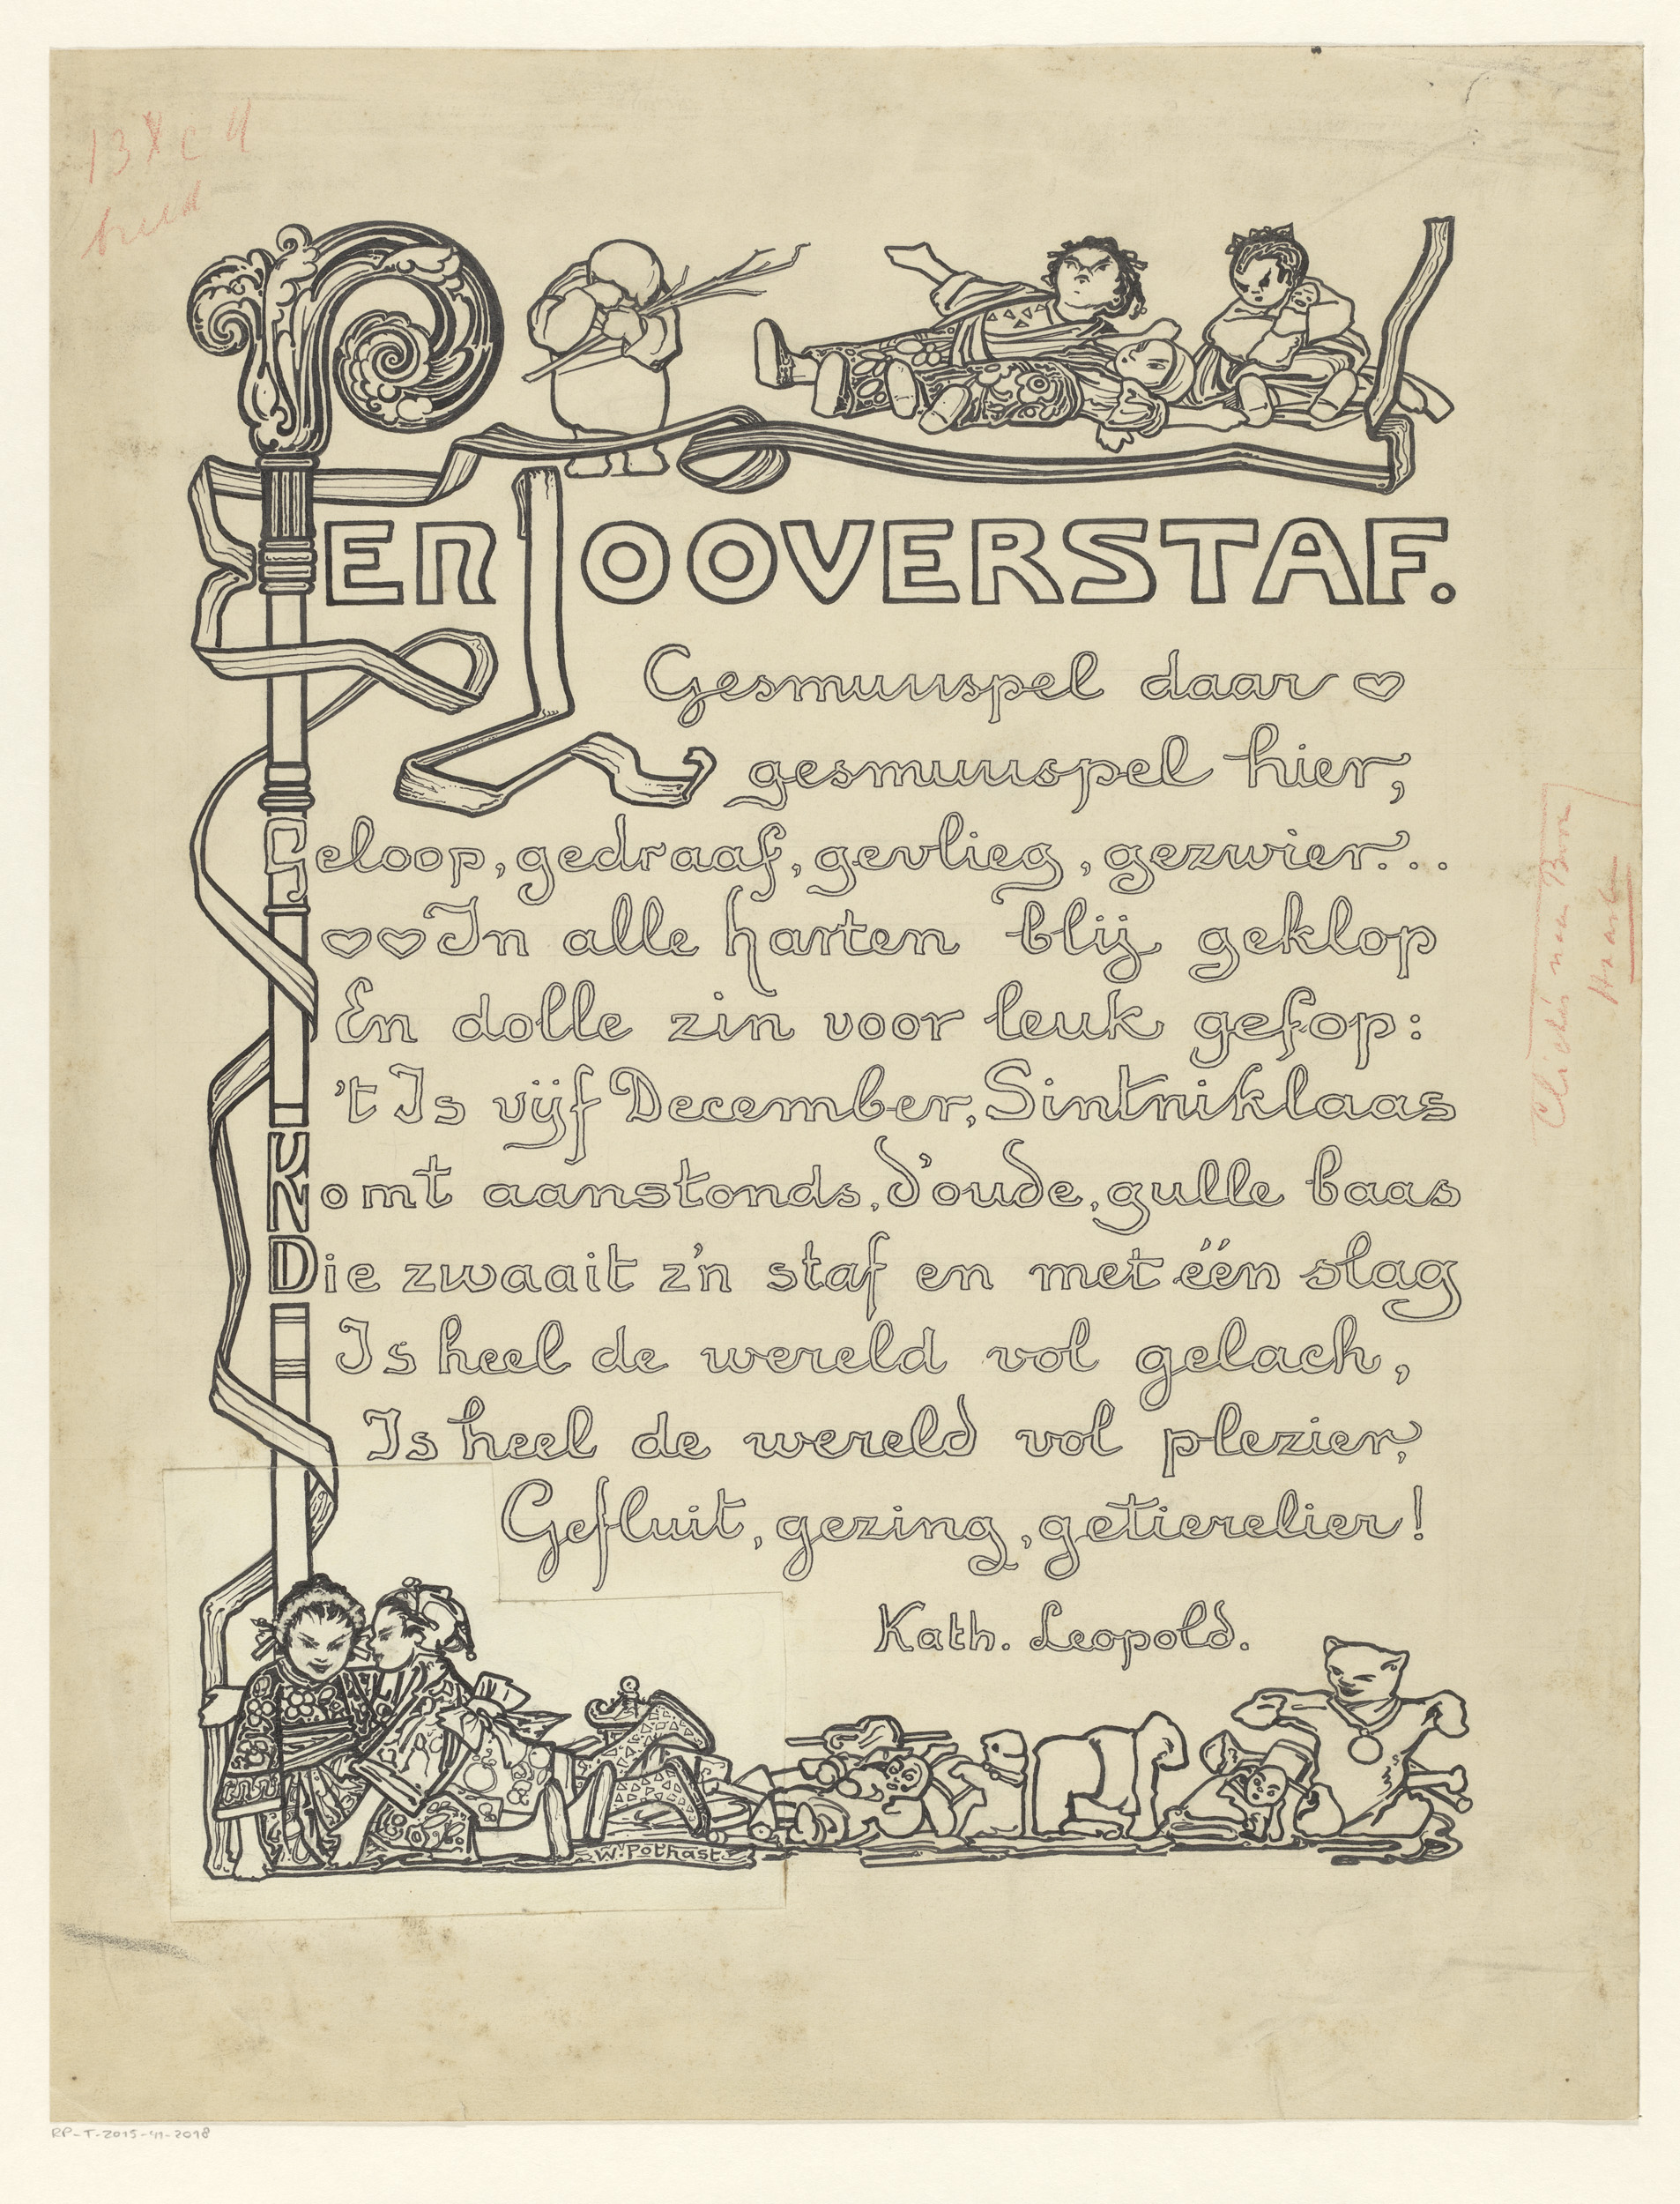 EEN TOOVERSTAF.
Gesmuispel daar
gesmuispel hier,
Geloop, gedraaf, gevlieg, gezwier...
In alle harten blij geklop
En dolle zin voor leuk gefop:
't Is vijf December, Sintniklaas
Komt aanstonds, d'oude, gulle baas
Die zwaait z'n staf en met één slag
Is heel de wereld vol gelach,
Is heel de wereld vol plezier,
Gefluit, gezing, getierelier!
Kath. Leopold.
W. Pothast
Clichés naar
Haarlem
RP-T-2015-41-2018